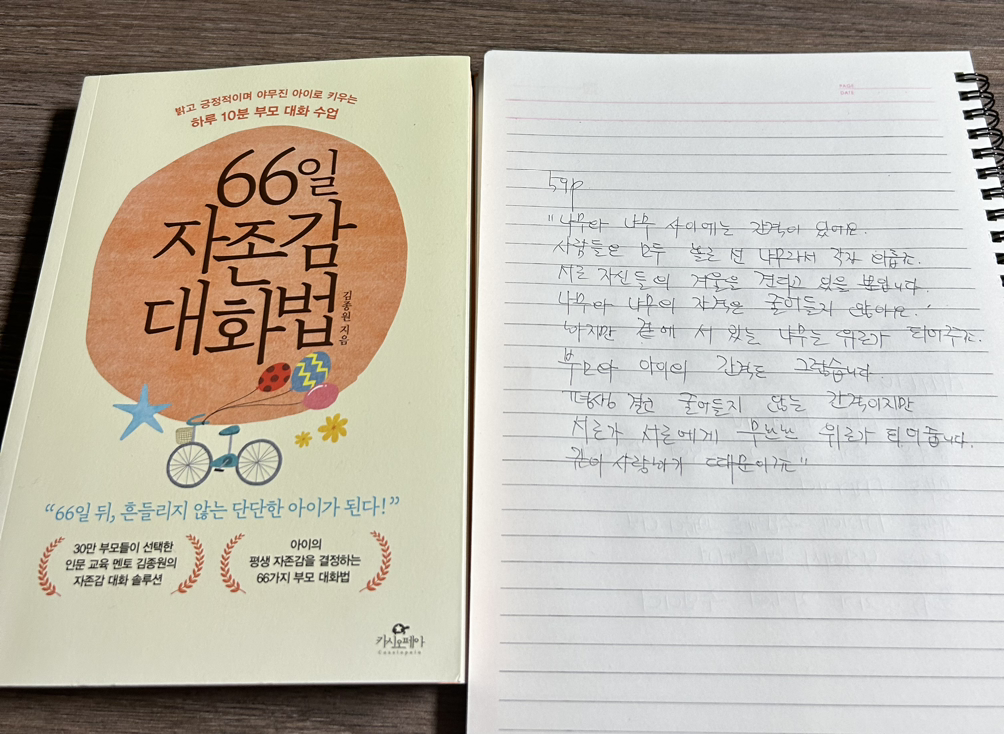 밝고 긍정적이며 야무진 아이로 키우는
하루 10분 부모 대화 수업
66일
자존감
대화법
김종원 지음
“66일 뒤, 흔들리지 않는 단단한 아이가 된다!”
30만 부모들이 선택한
인문 교육 멘토 김종원의
자존감 대화 솔루션
아이의
평생 자존감을 결정하는
66가지 부모 대화법
카시오페아
Cassiopeia
PAGE
DATE
59p
"나무와 나무 사이에는 간격이 있어요.
사람들은 모두 홀로 선 나무라서 각자 외롭죠.
서로 자신들의 겨울을 견디고 있을 뿐입니다.
나무와 나무의 간격은 줄어들지 않아요.
하지만 곁에 서 있는 나무는 위로가 되어주죠.
부모와 아이의 간격도 그렇습니다.
평생 결코 줄어들지 않는 간격이지만
서로가 서로에게 위로가 되어줍니다.
깊이 사랑하기 때문이죠"